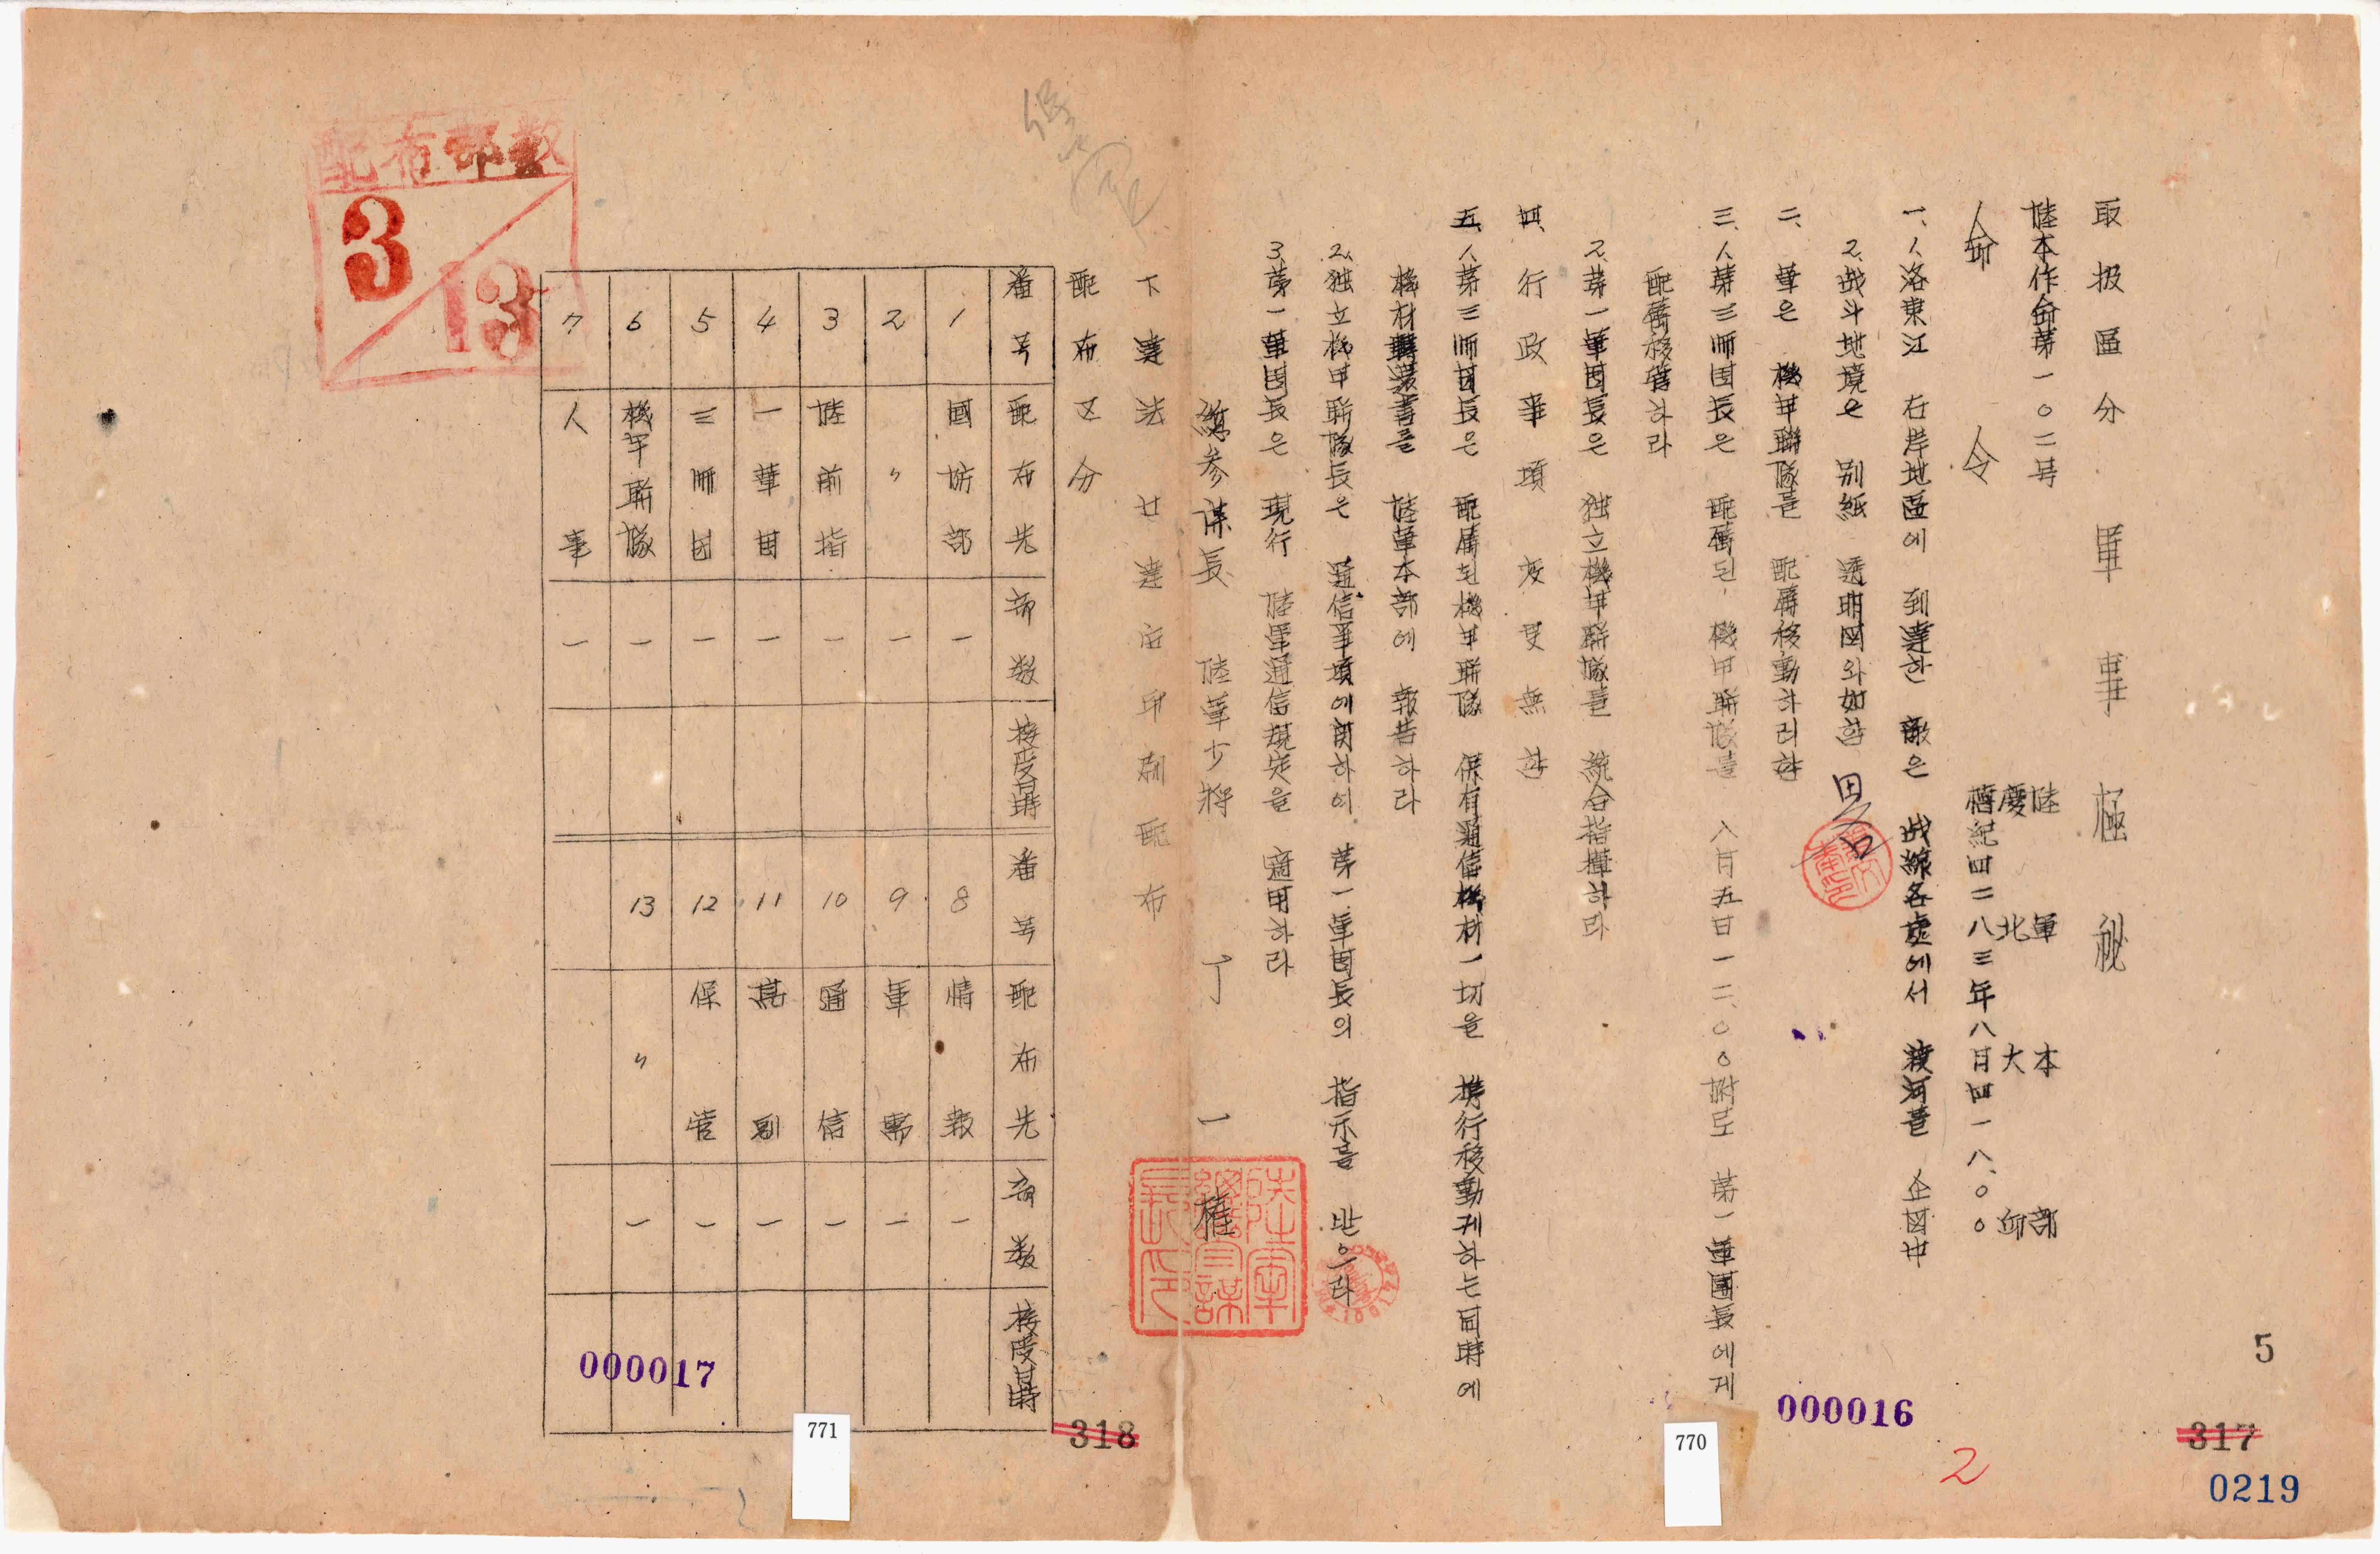 取扱區分 軍事極秘
陸本作命第一〇二号
陸軍本部
慶北大邱
檀紀四二八三年八月四一八、〇〇
命令
一、1、洛東江 右岸地區에 到達한 敵은 战線各處에서 渡河를 企図中
2、战斗地境은 別紙 透明図와如함
二、軍은 機甲聯隊를 配属移動하려함
三、1、第三師団長은 配属된 機甲聯隊를 八月五日一二、〇〇附로 第一軍團長에게
配属移管하라
2、第一軍団長은 独立機甲聯隊를 統合指揮하라
四、行政事項 変更無함
五、1、第三師団長은 配属된機甲聯隊 保有通信機材一切을 携行移動케하는同時에
機材 를 陸軍本部에 報告하라
2、独立機甲聯隊長은 通信事項에関하여 第一軍団長의 指示를 받으라
3、第一軍団長은 現行 陸軍通信規定을 適用하라
總参謀長 陸軍少將 丁一權
下達法 廿達后印刷配布
配布区分
番号 配布先 部数 接受日時 番号 配布先 部数 接受日時
1 國坊部 一 8 情報 一
2 〃 一 9 軍需 一
3 陸前指 一 10 通信 一
4 一軍団 一 11 高副 一
5 三師団 一 12 保管 一
6 機甲聯隊 一 13 〃 一
7 人事 一
配布部数
3
13
000017
771
318
000016
770
5
317
2
0219